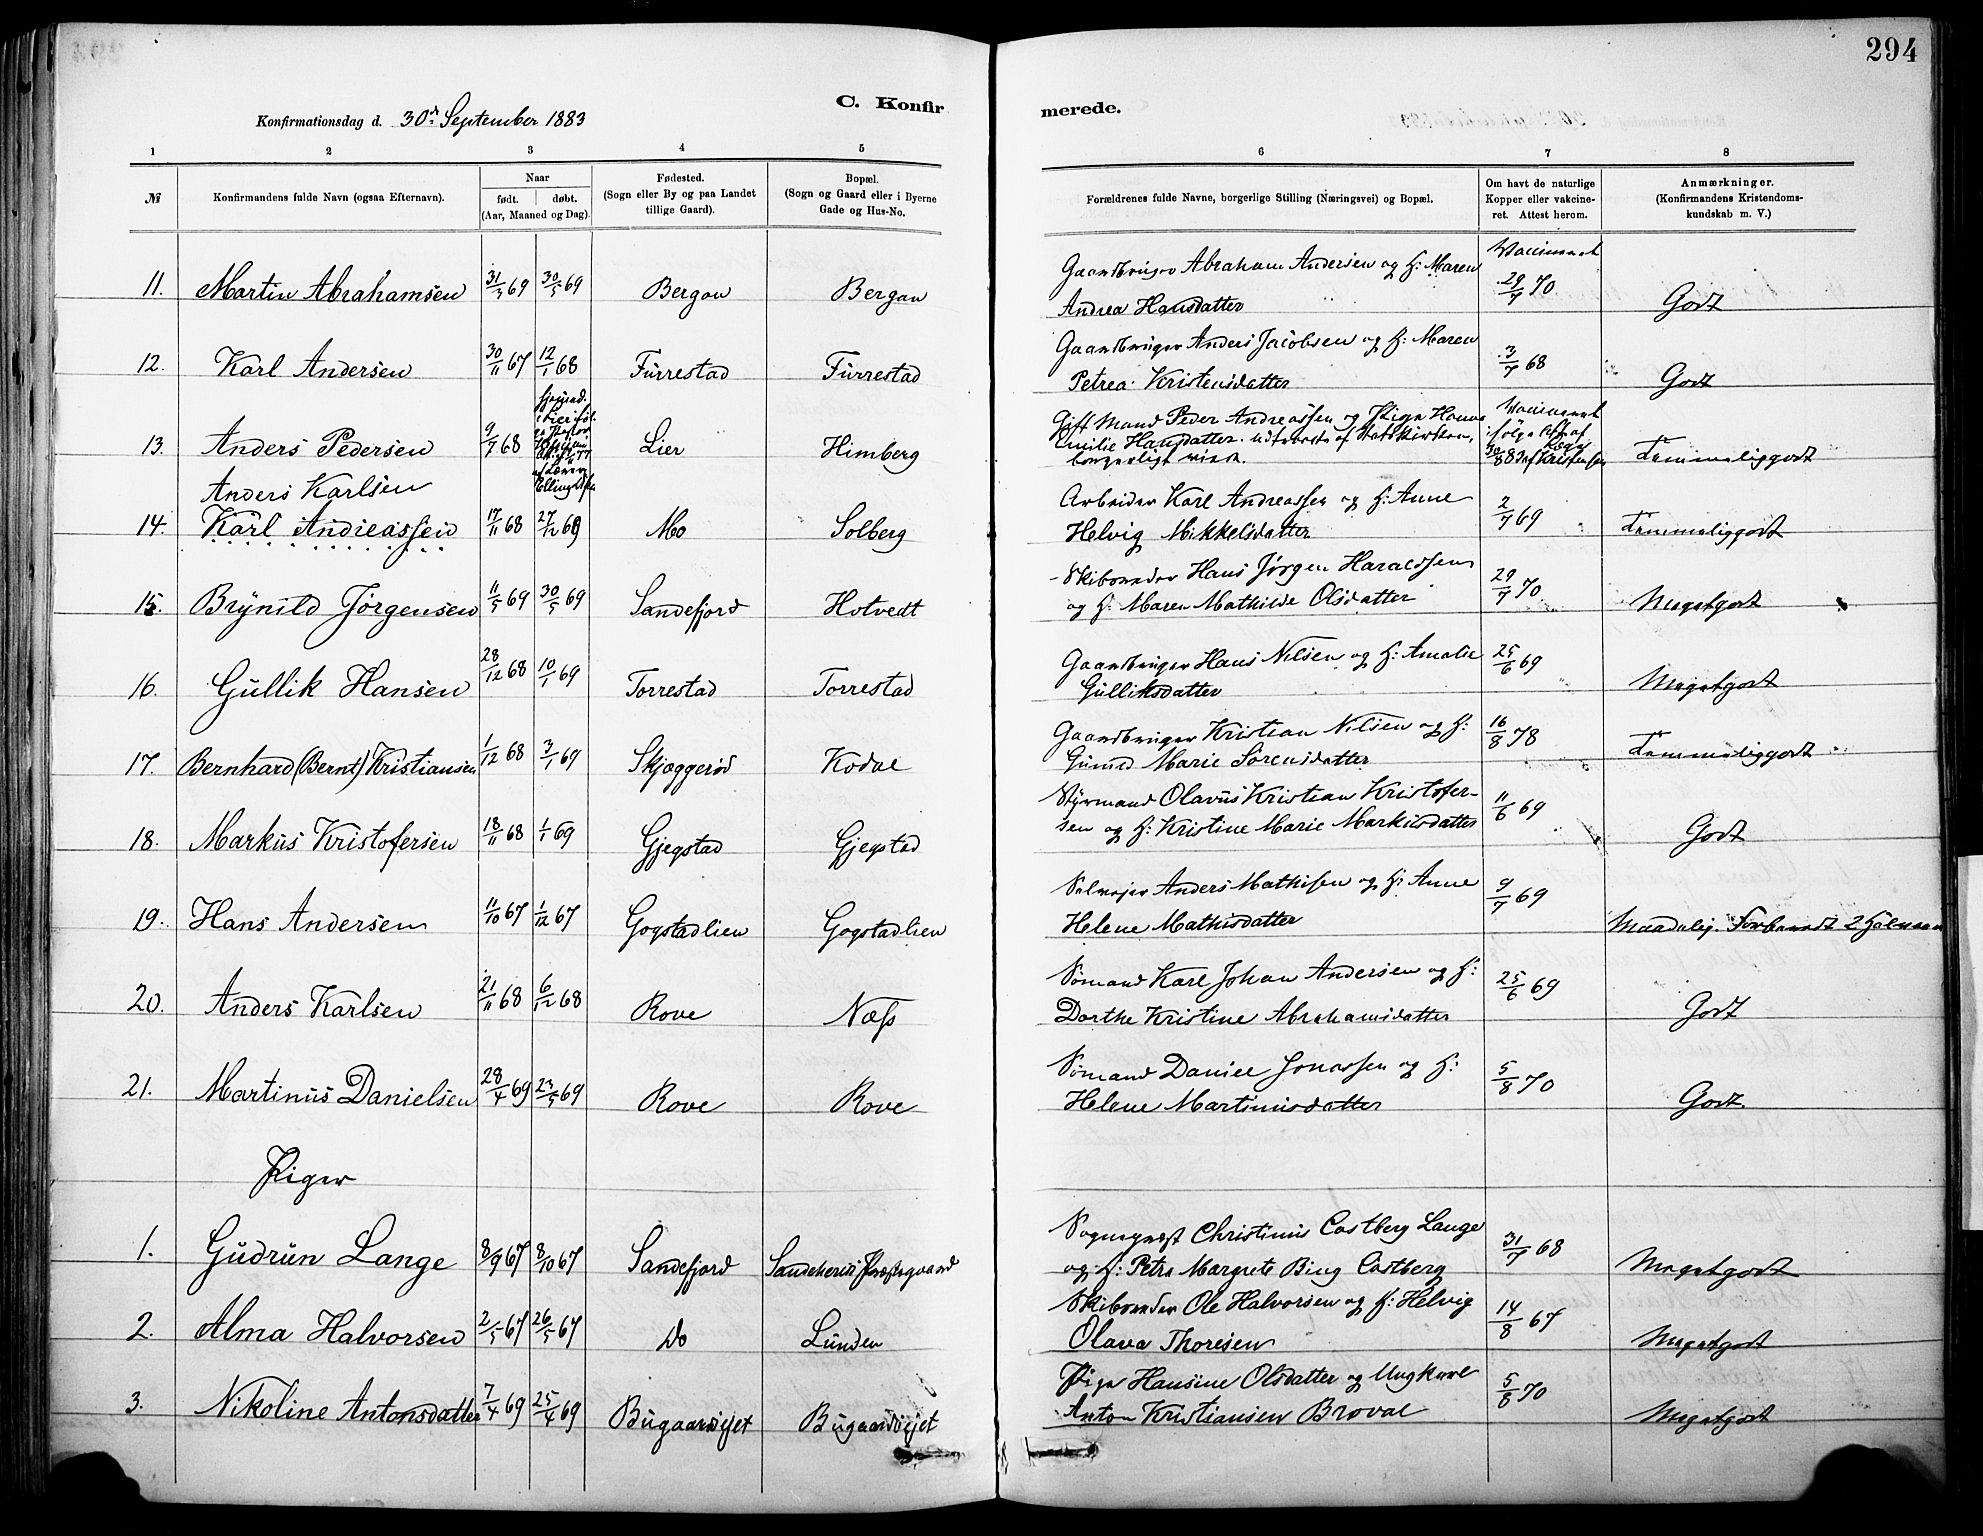 294
C. Konfirmerede.
Konfirmationsdag d. 30te September 1883
1 2 3 4 5 6 7 8
№ Konfirmandens fulde Navn (ogsaa Efternavn). Naar født. døbt. (Aar, Maaned og Dag). Fødested. (Sogn eller By og paa Landet tillige Gaard). Bopæl. (Sogn og Gaard eller i Byerne Gade og Hus-No. Forældrenes fulde Navne, borgerlige Stilling (Næringsvei) og Bopæl. Om havt de naturlige Kopper eller vakcineret. Attest herom. Anmærkninger. (Konfirmandens Kristendomskundskab m. V.)
11. Martin Abrahamsen 31/3 69 30/5 69 Bergan Bergan Gaardbruger Abraham Andersen og H: Maren Vaccineret
Andrea Hansdatter 29/7 70 Godt
12. Karl Andersen 30/11 67 12/1 68 Furrestad Furrestad Gaardbruger Anders Jacobsen og H: Maren
Petrea Kristensdatter 3/7 68 Godt
13. Anders Pedersen 9/7 68 Lier Himberg Gift Mand Peder Andreassen og Pige Hanna Vaccineret
Emilie Hansdatter. udtraadte af Statskirken, ifølge Att. af
borgerligt viede. 30/8 83 af Kristensen Temmeliggodt
Anders Karlsen
14. Karl Andreassen 17/11 68 27/12 68 Mo Solberg Arbeider Karl Andreassen og H: Anne
Helvig Mikkelsdatter 2/7 69 Temmeliggodt
15. Brynild Jørgensen 11/5 69 30/5 69 Sandefjord Hotvedt Skibsreder Hans Jørgen Haraldsen
og H: Maren Mathilde Olsdatter 29/7 70 Megetgodt
16. Gullik Hansen 28/12 68 10/1 69 Torrestad Torrestad Gaardbruger Hans Nilsen og H: Amalie
Gulliksdatter 25/6 69 Megetgodt
17. Bernhard (Bernt) Kristiansen 1/12 68 3/1 69 Skjaggerød Kodal Gaardbruger Kristian Nilsen og H:
Gunild Marie Sørensdatter 16/8 78 Temmeliggodt
18. Markus Kristofersen 18/11 68 1/1 69 Gjegstad Gjegstad Styrmand Olavus Kristian Kristofer-
sen og H: Kristine Marie Markusdatter 11/6 69 Godt
19. Hans Andersen 11/10 67 1/12 67 Gogstadlien Gogstadlien Selveier Anders Mathisen og H: Anne
Helene Mathisdatter 9/7 69 Maadelig. Forberedt 2 Halvaar
20. Anders Karlsen 21/11 68 6/12 68 Rove Næss Sømand Karl Johan Andersen og H:
Dorthe Kristine Abrahamsdatter 25/6 69 Godt
21. Martinus Danielsen 28/4 69 23/5 69 Rove Rove Sømand Daniel Jonassen og H:
Helene Martinusdatter 5/8 70 Godt
Piger
1. Gudrun Lange 8/9 67 8/10 67 Sandefjord Sandeherreds Præstegaard Sogneprest Christinus Castberg Lange
og H: Petra Margrete Bing Castberg 31/7 68 Megetgodt
2. Alma Halvorsen 2/5 67 26/5 67 Do Lunden Skibsreder Ole Halvorsen og H: Helvig
Olava Thoresen 14/8 67 Megetgodt
3. Nikoline Antonsdatter 7/4 69 25/4 69 Bugaardsejet Bugaardsejet Pige Hansine Olsdatter og Ungkarl
Anton Kristiansen Broval 5/8 70 Megetgodt